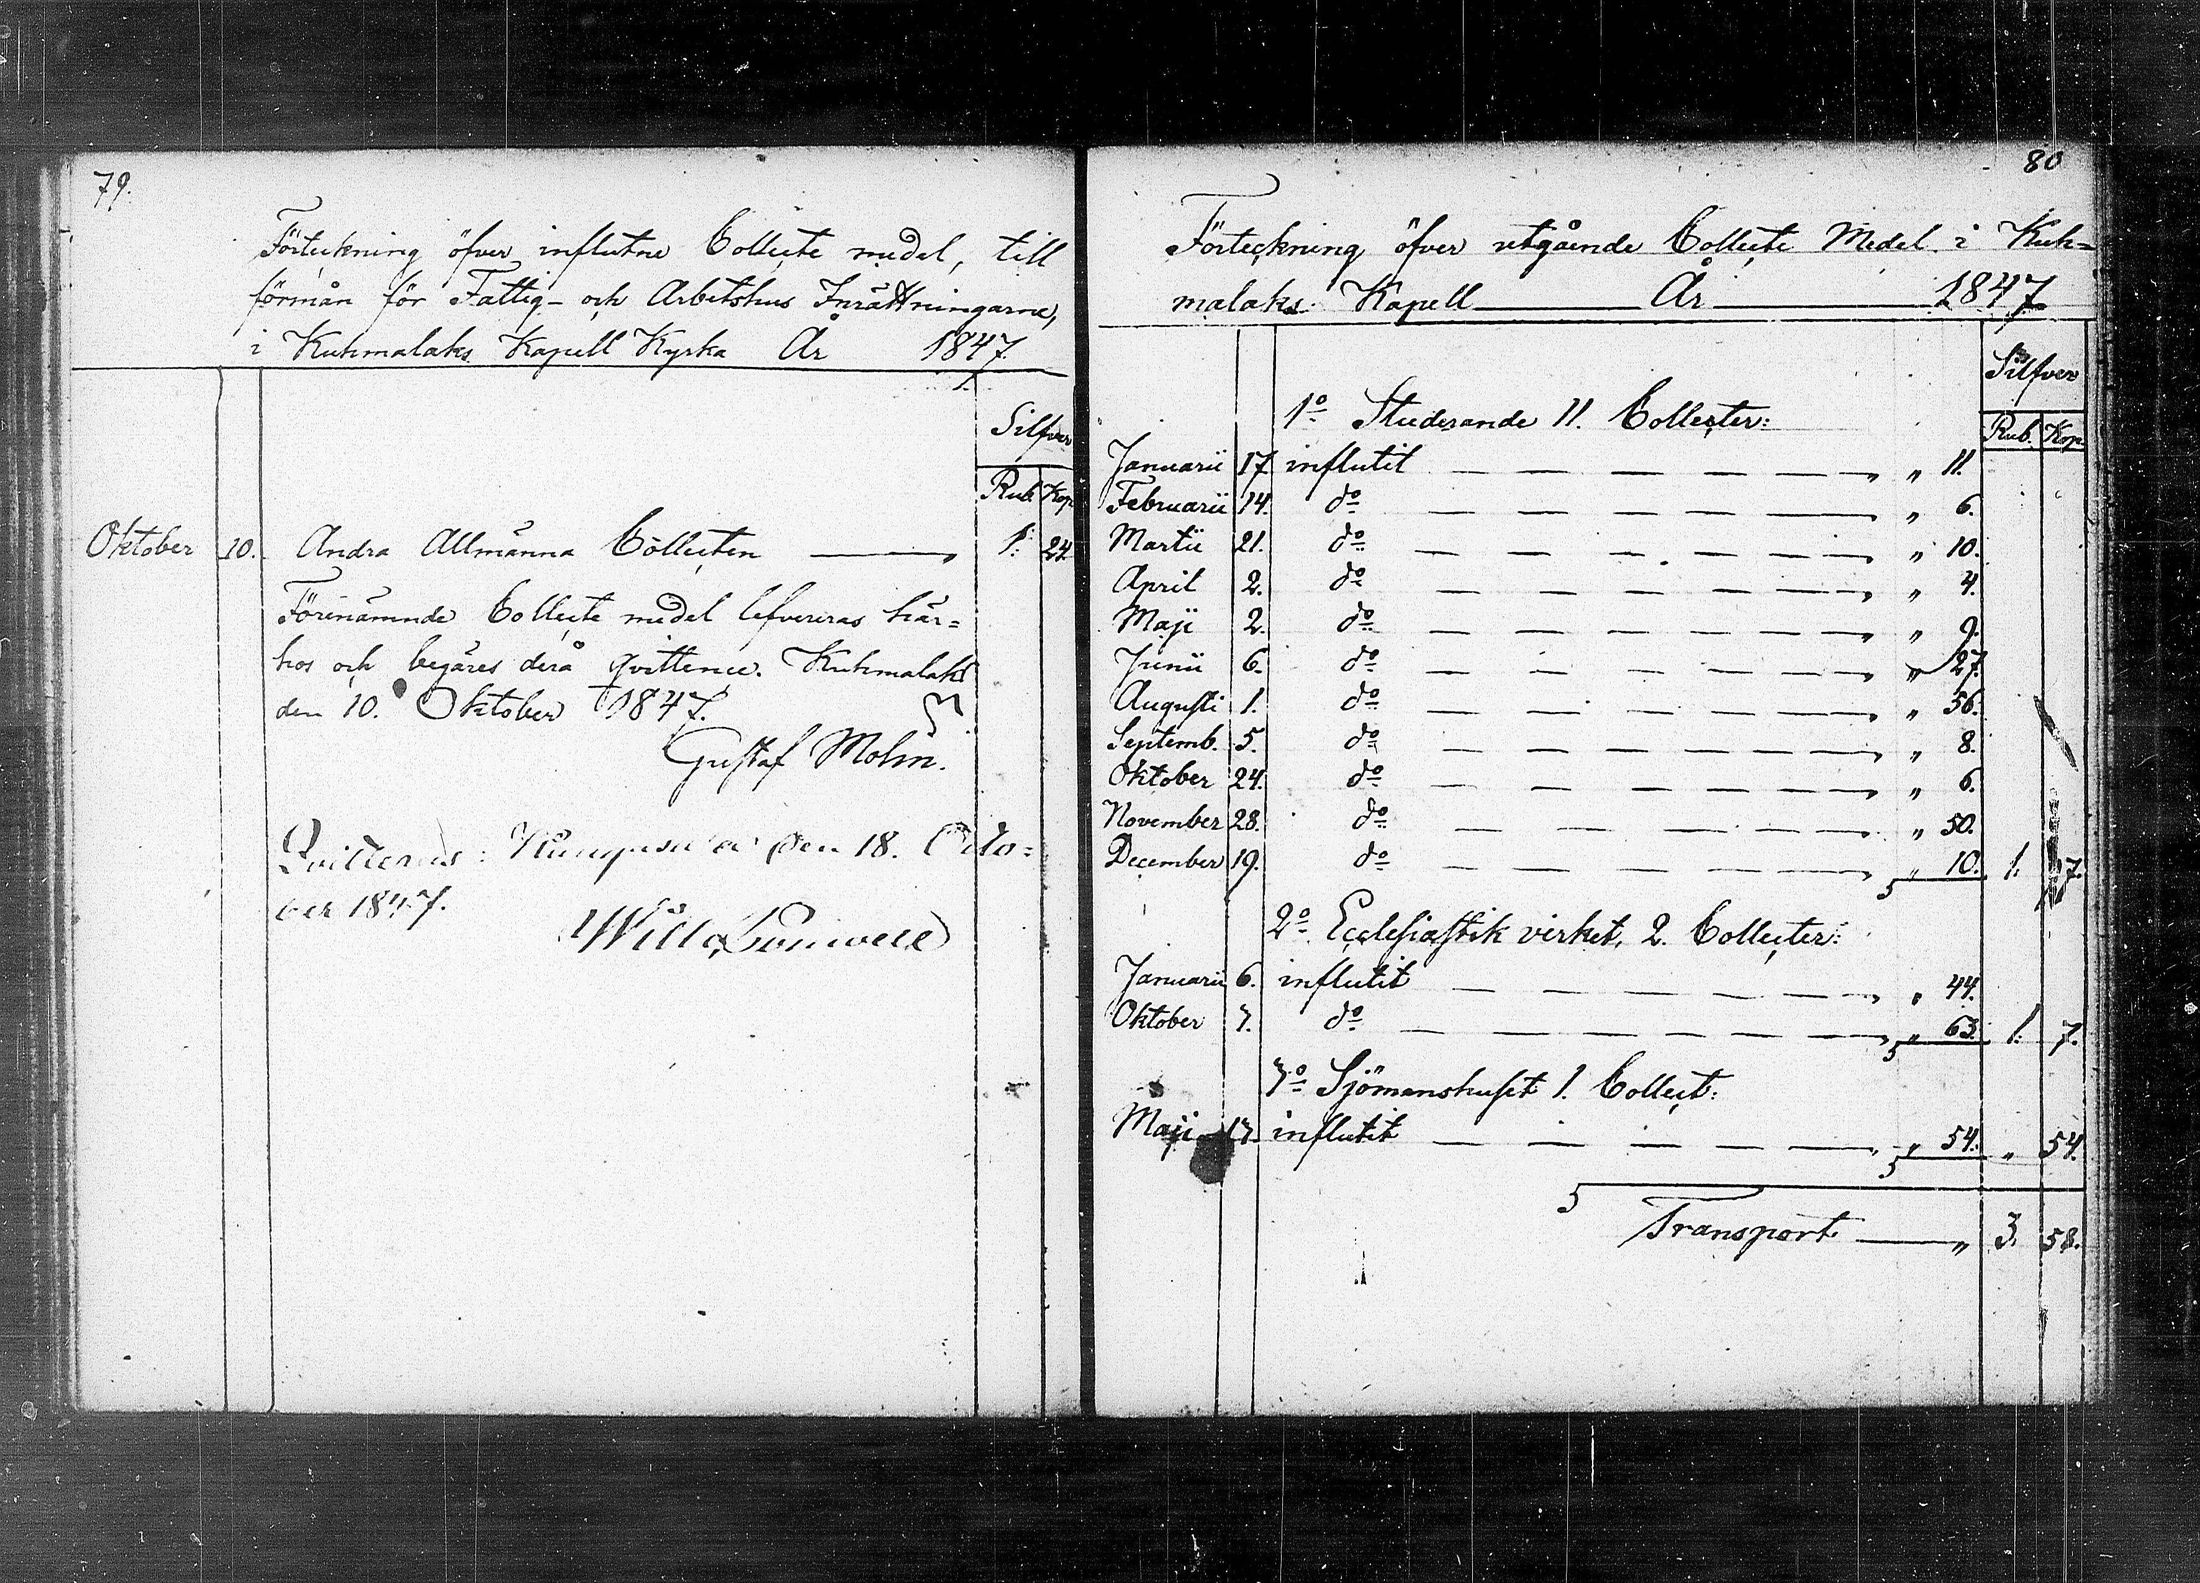 79.
Förteckning öfver influtne Collecte medel, till
förmån för Fattig- och Arbetshus Inrättningarne,
i Kuhmalaks Kapell Kyrka År 1847.
Silfver
Rub. Kop.
Oktober 10. Andra Allmänna Collecten — " 1. 24.
Förenämnde Collecte medel lefvereras här=
hos och begäres derå qvittence. Kuhmalaks
den 10. Oktober 1847.
Gustaf Molin.
Qvitteras: den 18. Octo=
ber 1847.
80
Förteckning öfver utgående Collecte Medel i Kuh=
malaks Kapell — År — 1847
Silfver
Rub. Kop.
1o Studerande 11. Collecter:
Januarii 17. influtit — — — — — — " " 11.
Februarii 14. do — — — — — — " " 6.
Martii 21. do — — — — — — " " 10.
April 2. do — — — — — — " " 4.
Maji 2. do — — — — — — " " 9.
Junii 6. do — — — — — — " " 27.
Augusti 1. do — — — — — — " " 56.
Septemb. 5. do — — — — — — " " 8.
Oktober 24. do — — — — — — " " 6.
November 28. do — — — — — — " " 50.
December 19. do — — — — — — " " 10. 1. 97.
2o Ecclesiastik virket, 2. Collecter:
Januarii 6. influtit — — — — — — " " 44.
Oktober 7. do — — — — — — " " 63. 1. 7.
3o Sjömanshuset 1. Collect:
Maji 13. influtit — — — — — " " 54. " 54.
Transport — " 3. 58.